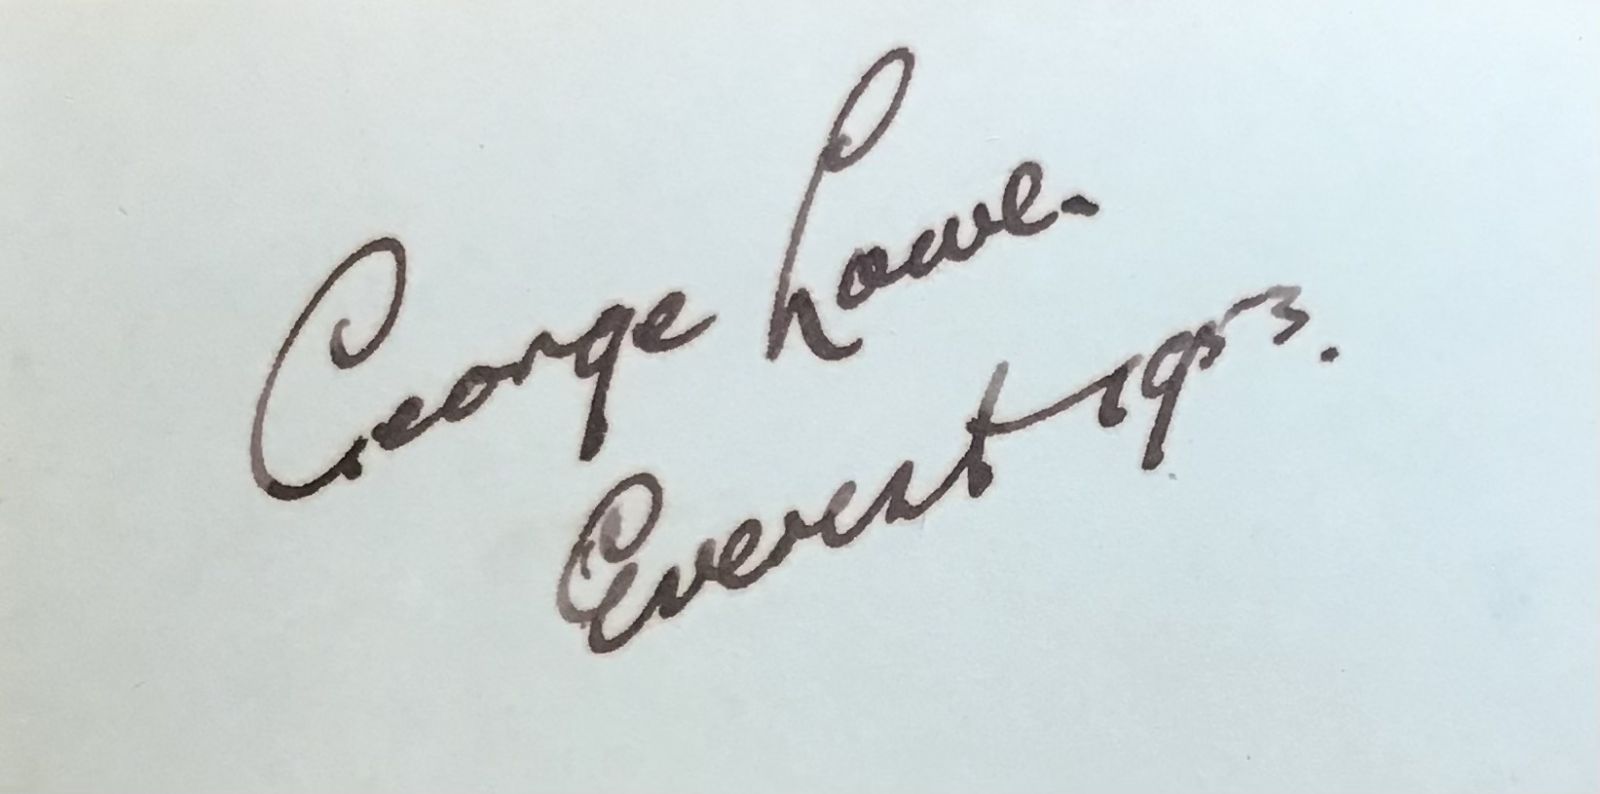 George Lowe.
Everest 1953.